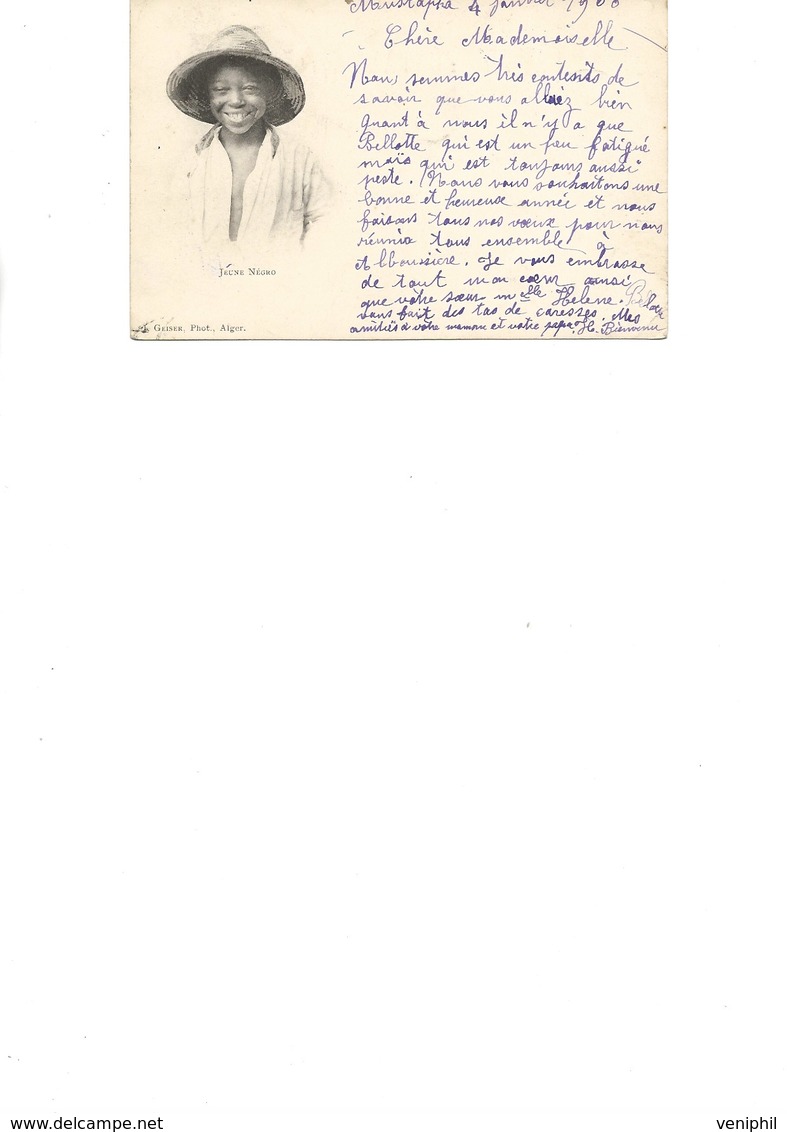 Mustapha 4 janvier 1900
Chère Mademoiselle
Nous sommes très contents de
savoir que vous alliez bien
quant à nous il n'y a que
Bellotte qui est un peu fatigué
mais qui est toujours aussi
peste. Nous vous souhaitons une
bonne et heureuse année et nous
faisons tous nos vœux pour nous
réunir tous ensemble à
Alboussière. Je vous embrasse
de tout mon cœur ainsi
que votre sœur Mlle Helene.
vous fait des tas de caresses. Mes
amitiés à votre maman et votre papa. H. Bienvenu
JEUNE NÈGRO
GEISER, Phot., Alger.
www.delcampe.net
veniphil